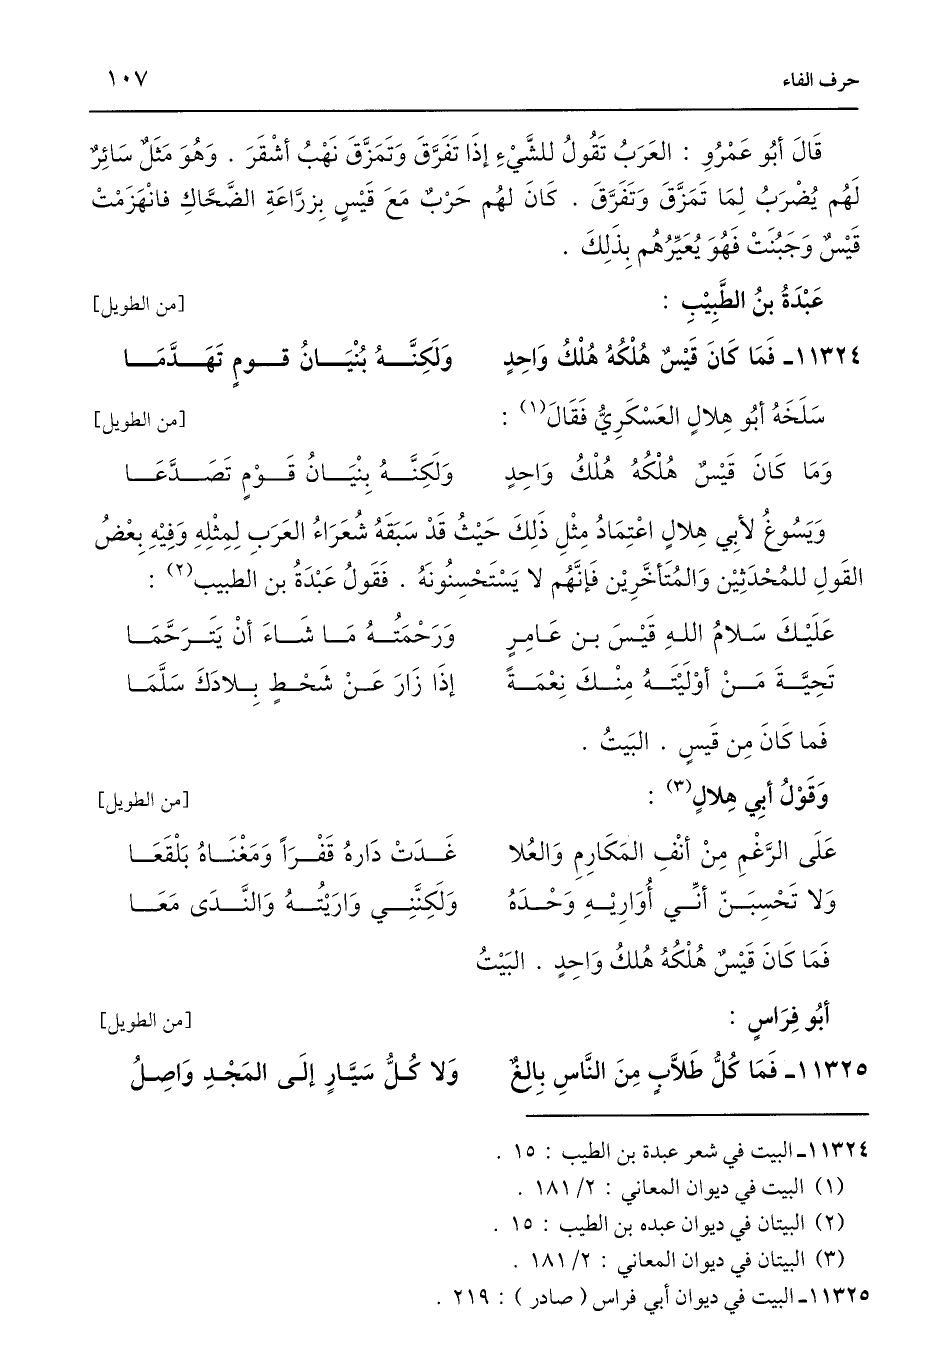 حرف الفاء ١٠٧
قَالَ أَبُو عَمْرُوٍ : العَرَبُ تَقُولُ للشَّيْءِ إِذَا تَفَرَّقَ وَتَمَزَّقَ نَهْبُ أَشْقَرَ . وَهُوَ مَثَلٌ سَائِرٌ
لَهُم يُضْرَبُ لِمَا تَمَزَّقَ وَتَفَرَّقَ . كَانَ لَهُم حَرْبٌ مَعَ قَيْسٍ بِزرَّاعَةِ الضَّحَّاكِ فانْهَزَمْتْ
قَيْسٌ وَجَبُنَتْ فَهُوَ يُعَيِّرُهُم بِذَلِكَ .
عَبْدَةُ بنُ الطَّبِيْبِ : [من الطويل]
١١٣٢٤ـ فَمَا كَانَ قَيْسٌ هُلْكُهُ هُلْكُ وَاحِدٍ وَلَكِنَّهُ بُنْيَانُ قومٍ تَهَدَّمَا
سَلَخَهُ أَبُو هِلالٍ العَسْكَرِيُّ فَقَالَ(١) : [من الطويل]
وَمَا كَانَ قَيْسٌ هُلْكُهُ هُلْكُ وَاحِدٍ وَلَكِنَّهُ بِنْيَانُ قَوْمٍ تَصَدَّعَا
وَيَسُوغُ لأَبِي هِلالٍ اعْتِمَادُ مِثْلِ ذَلِكَ حَيْثُ قَدْ سَبَقَهُ شُعَرَاءُ العَرَبِ لِمِثْلِهِ وَفِيْهِ بِعْضُ
القَولِ للمُحْدَثِيْنَ وَالمُتَأَخَّرِيْن فَإِنَّهُم لا يَسْتَحْسِنُونَهُ . فَقَولُ عَبْدَةُ بن الطبيب(٢) :
عَلَيْكَ سَلامُ اللهِ قَيْسَ بن عَامِرٍ وَرَحْمَتُهُ مَا شَاءَ أَنْ يَتَرَحَّمَا
تَحِيَّةَ مَنْ أَوْلَيْتَهُ مِنْكَ نِعْمَةً إِذَا زَارَ عَنْ شَحْطٍ بِلادَكَ سَلَّمَا
فَما كَانَ مِن قَيسٍ . البَيتُ .
وَقَوْلُ أَبِي هِلالٍ(٣) : [من الطويل]
عَلَى الرَّغْمِ مِنْ أَنْفِ المَكَارِمِ وَالعُلا غَدَتْ دَارهُ قَفْراً وَمَغْنَاهُ بَلْقَعَا
وَلا تَحْسِبَنّ أَنَّي أُوَارِيْهِ وَحْدَهُ وَلَكِنَّنِي وَارَيْتُهُ وَالنَّدَى مَعَا
فَمَا كَانَ قَيْسٌ هُلْكُهُ هُلكُ وَاحِدٍ . البَيْتُ
أَبُو فِرَاسٍ : [من الطويل]
١١٣٢٥ـ فَمَا كُلُّ طَلاَّبٍ مِنَ النَّاسِ بِالِغٌ وَلا كُلُّ سَيَّارٍ إِلَى المَجْدِ وَاصِلُ
١١٣٢٤ـ البيت في شعر عبدة بن الطيب : ١٥ .
(١) البيت في ديوان المعاني : ٢/ ١٨١ .
(٢) البيتان في ديوان عبده بن الطيب : ١٥ .
(٣) البيتان في ديوان المعاني : ٢/ ١٨١ .
١١٣٢٥ـ البيت في ديوان أبي فراس ( صادر ) : ٢١٩ .